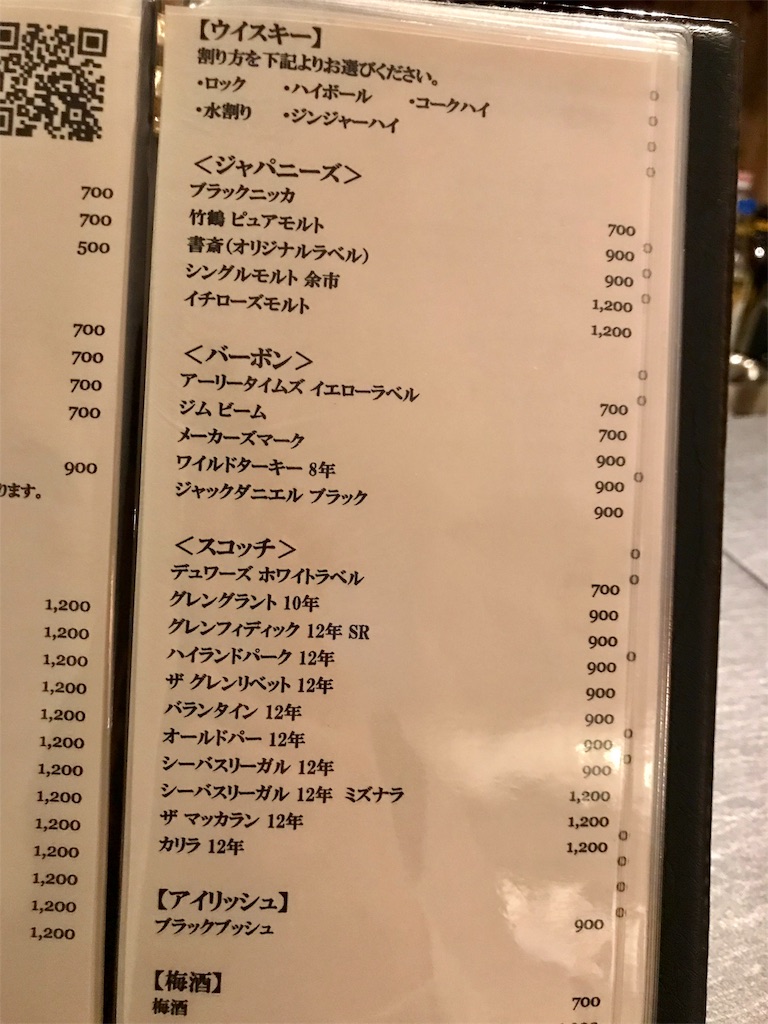 700
700
500
700
700
700
700
900
ります。
1,200
1,200
1,200
1,200
1,200
1,200
1,200
1,200
1,200
1,200
1,200
1,200
1,200
【ウイスキー】
割り方を下記よりお選びください。
・ロック ・ハイボール ・コークハイ
・水割り ・ジンジャーハイ
＜ジャパニーズ＞
ブラックニッカ 700
竹鶴 ピュアモルト 900
書斎(オリジナルラベル) 900
シングルモルト 余市 1,200
イチローズモルト 1,200
＜バーボン＞
アーリータイムズ イエローラベル 700
ジム ビーム 700
メーカーズマーク 900
ワイルドターキー 8年 900
ジャックダニエル ブラック 900
＜スコッチ＞
デュワーズ ホワイトラベル 700
グレングラント 10年 900
グレンフィディック 12年 SR 900
ハイランドパーク 12年 900
ザ グレンリベット 12年 900
バランタイン 12年 900
オールドパー 12年 900
シーバスリーガル 12年 900
シーバスリーガル 12年 ミズナラ 1,200
ザ マッカラン 12年 1,200
カリラ 12年 1,200
【アイリッシュ】
ブラックブッシュ 900
【梅酒】
梅酒 700